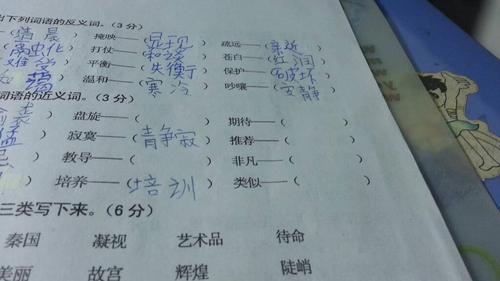 出下列词语的反义词。(3 分)
晨) 掩映——(显现) 疏远——(亲近
打仗——(和谈) 苍白——(红润
难 平衡——(失衡) 保护——(破坏
温和——(寒冷) 吵嚷——(安静
词语的近义词。(3 分)
盘旋——( ) 期待——( )
寂寞——(青静寂) 推荐——( )
教导——( ) 非凡——( )
培养——(培训) 类似——( )
三类写下来。(6 分)
秦国 凝视 艺术品 待命
美丽 故宫 辉煌 陡峭